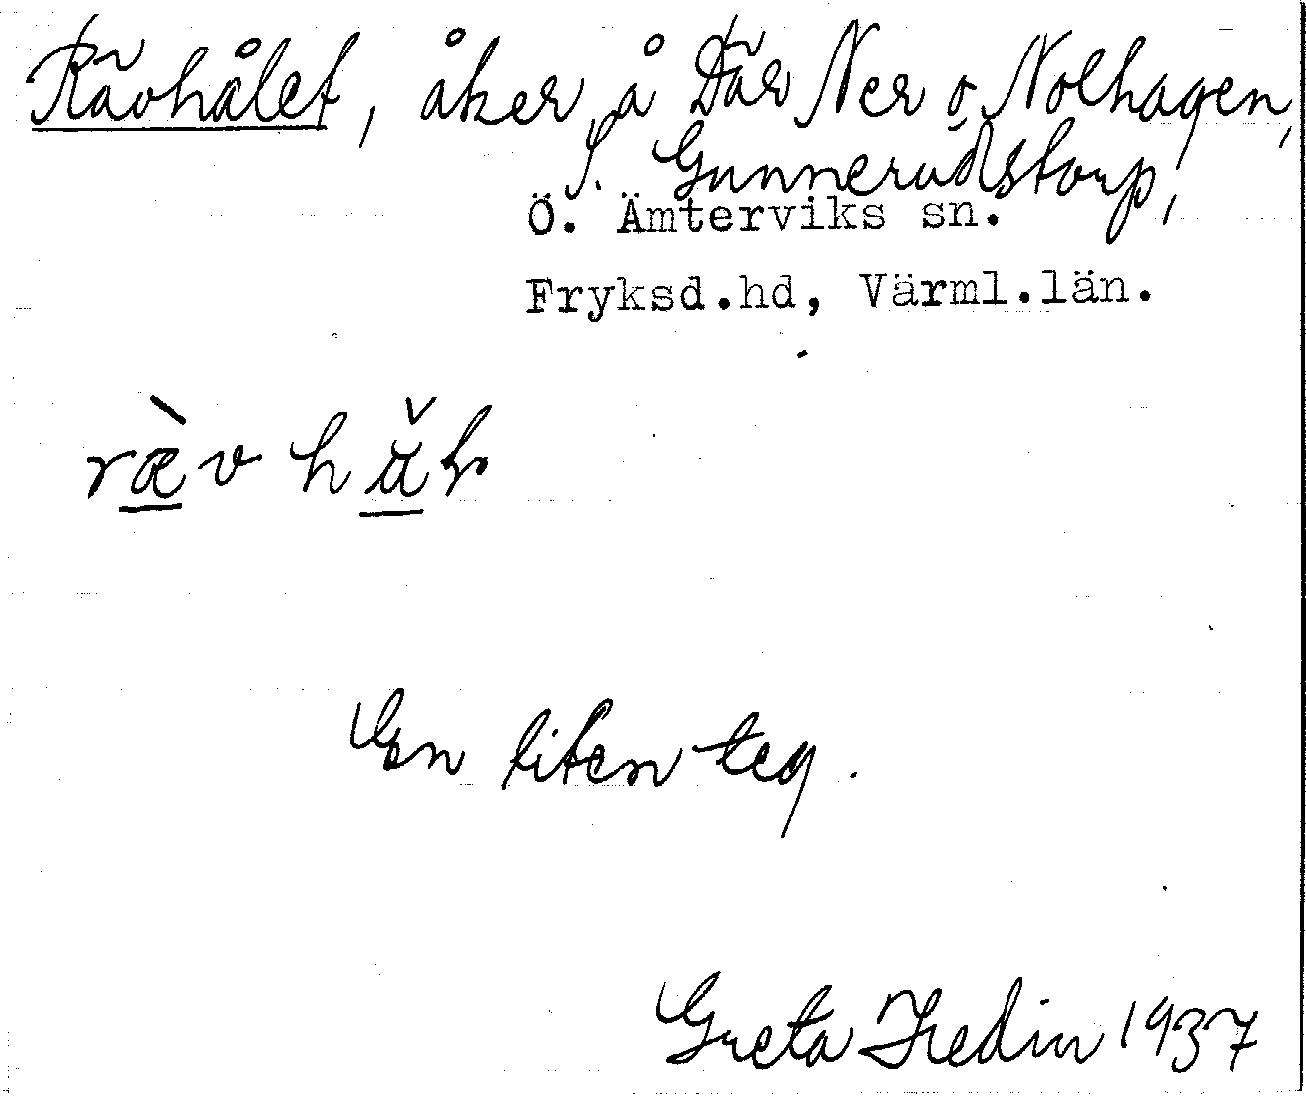 Rävhålet, åker å Där Ner o Nolhagen,
S. Gunnerudstorp,
Ö. Ämterviks sn.
Fryksd.hd, Värml.län.
En liten teg.
Greta Hedin 1937